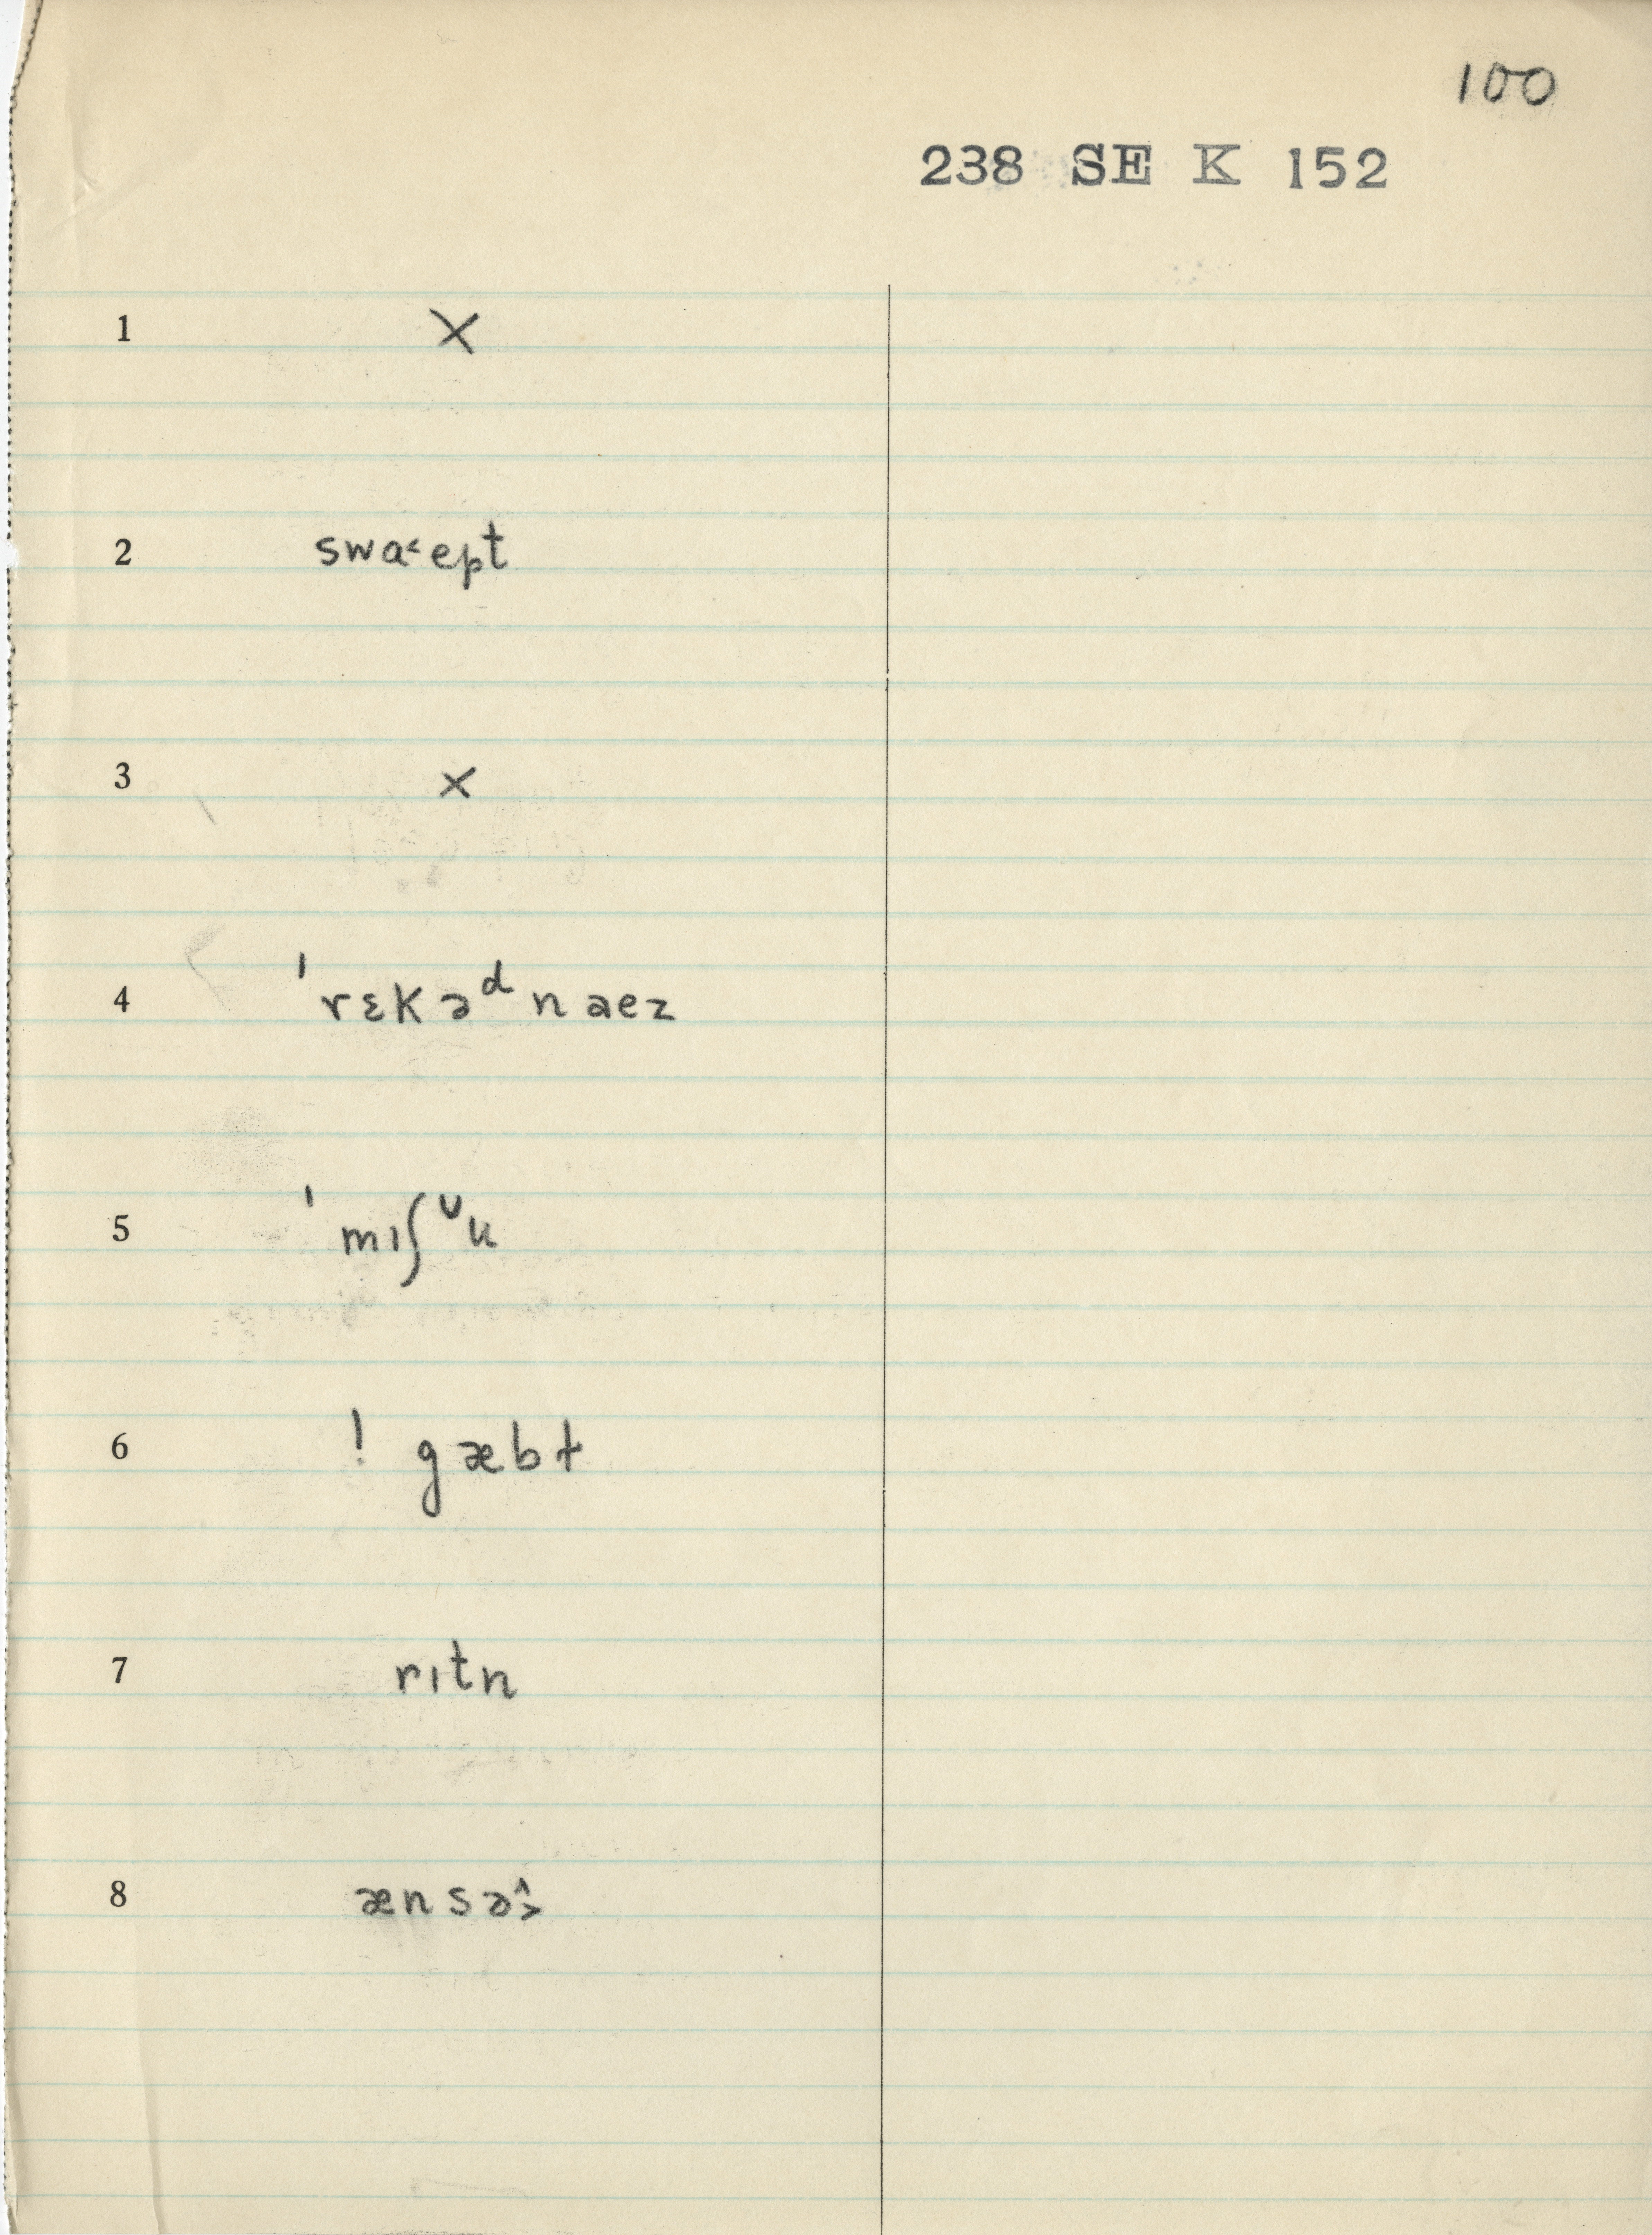 100
238 SE K 152
1 X
2 swɑ˂ept
3 X
4 ˈrɛkəᵈnaez
5 ˈmɪʃᶷu
6 ! gæbt
7 rɪtn
8 ænsə˄˃